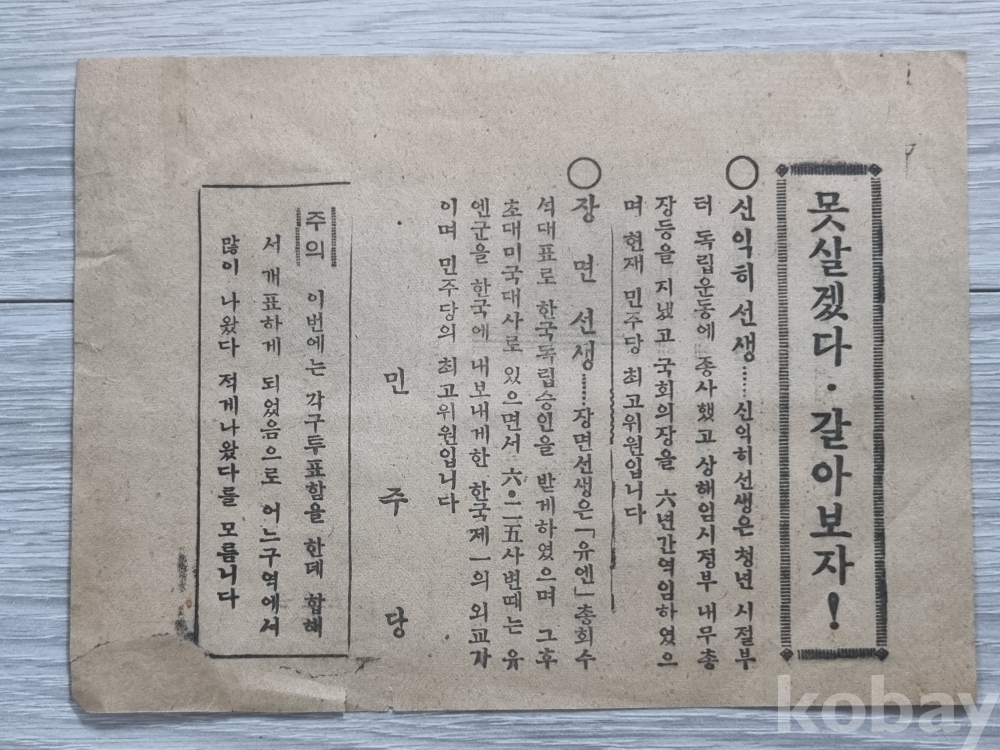 못살겠다·갈아보자!
○신익히 선생……신익히선생은 청년 시절부
터 독립운동에 종사했고 상해임시정부 내무총
장등을 지냈고 국회의장을 六년간역임하였으
며 현재 민주당 최고위원입니다
○장 면 선생……장면선생은「유엔」총회수
석대표로 한국독립승인을 받게하였으며 그후
초대미국대사로 있으면서 六·二五사변때는 유
엔군을 한국에 내보내게한 한국제一의 외교가
이며 민주당의 최고위원입니다
민 주 당
주의 이번에는 각구투표함을 한데 합해
서 개표하게 되었음으로 어느구역에서
많이 나왔다 적게나왔다를 모릅니다
kobay